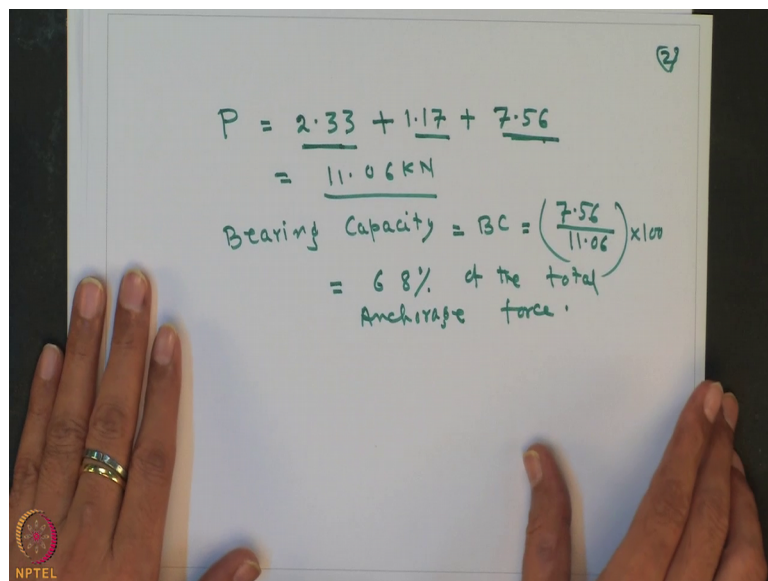 2
P = 2.33 + 1.17 + 7.56
= 11.06 KN
Bearing Capacity = BC = (7.56/11.06) × 100
= 68% of the total
Anchorage force.
NPTEL